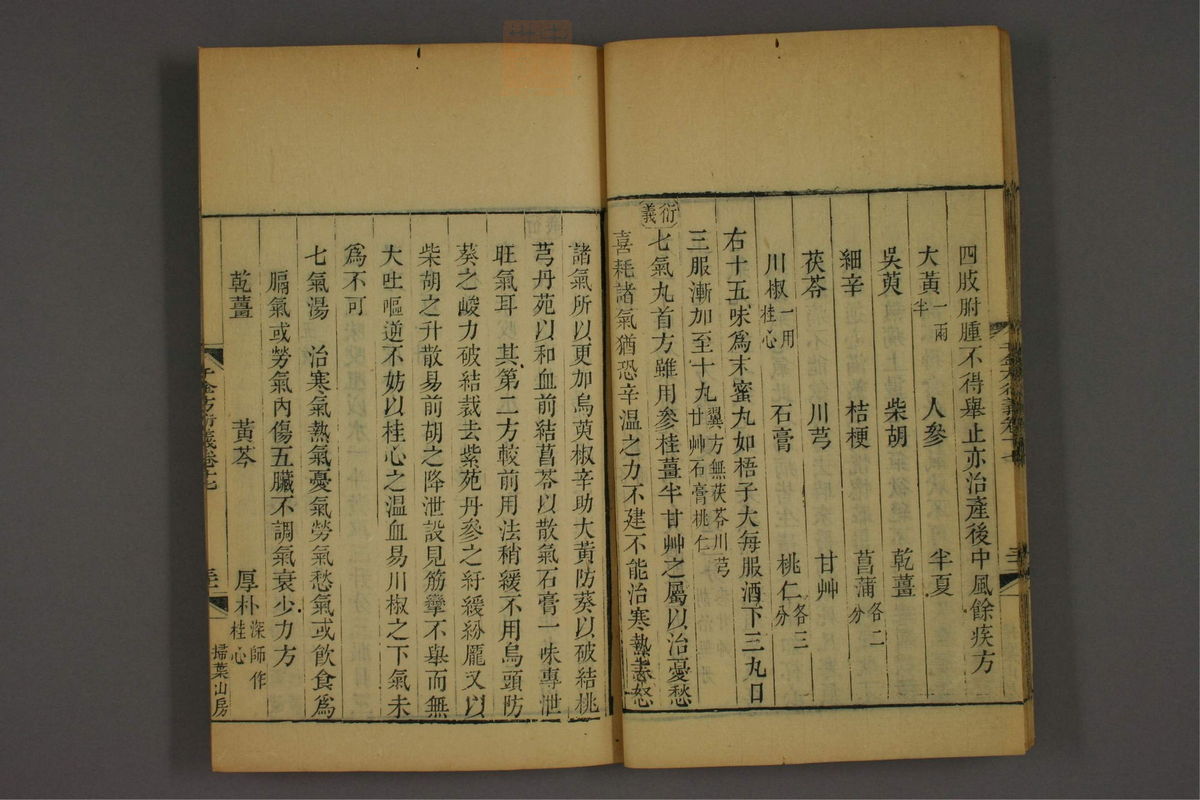 四肢胕腫不得舉止亦治產後中風餘疾方
大黃一兩半 人參 半夏
吳萸 柴胡 乾薑
細辛 桔梗 菖蒲各二分
茯苓 川芎 甘艸
川椒一用桂心 石膏 桃仁各三分
右十五味為末蜜丸如梧子大每服酒下三丸日
三服漸加至十丸翼方無茯苓川芎甘艸石膏桃仁
衍義
七氣丸首方雖用參桂薑半甘艸之屬以治憂愁
喜耗諸氣猶恐辛溫之力不建不能治寒熱恚怒
諸氣所以更加烏萸椒辛助大黃防葵以破結桃
芎丹苑以和血前結菖苓以散氣石膏一味專泄
旺氣耳其第二方較前用法稍緩不用烏頭防
葵之峻力破結裁去紫苑丹參之紆緩紛龎又以
柴胡之升散易前胡之降泄設見筋攣不舉而無
大吐嘔逆不妨以桂心之溫血易川椒之下氣未
為不可
七氣湯 治寒氣熱氣憂氣勞氣愁氣或飲食為
膈氣或勞氣內傷五臟不調氣衰少力方
乾薑 黃芩 厚朴深師作桂心
千金方衍義卷十七
掃葉山房